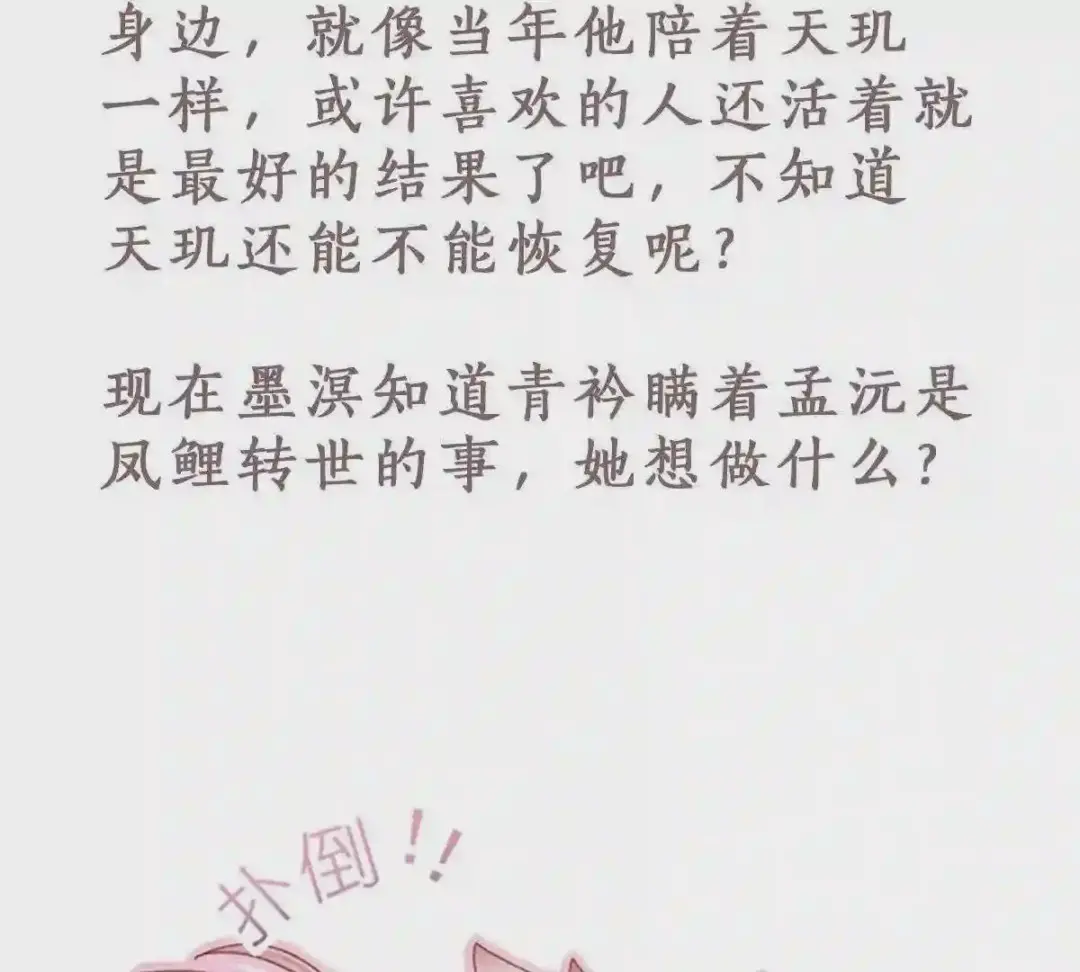 身边，就像当年他陪着天玑
一样，或许喜欢的人还活着就
是最好的结果了吧，不知道
天玑还能不能恢复呢？
现在墨溟知道青衿瞒着孟沅是
凤鲤转世的事，她想做什么？
扑倒！！